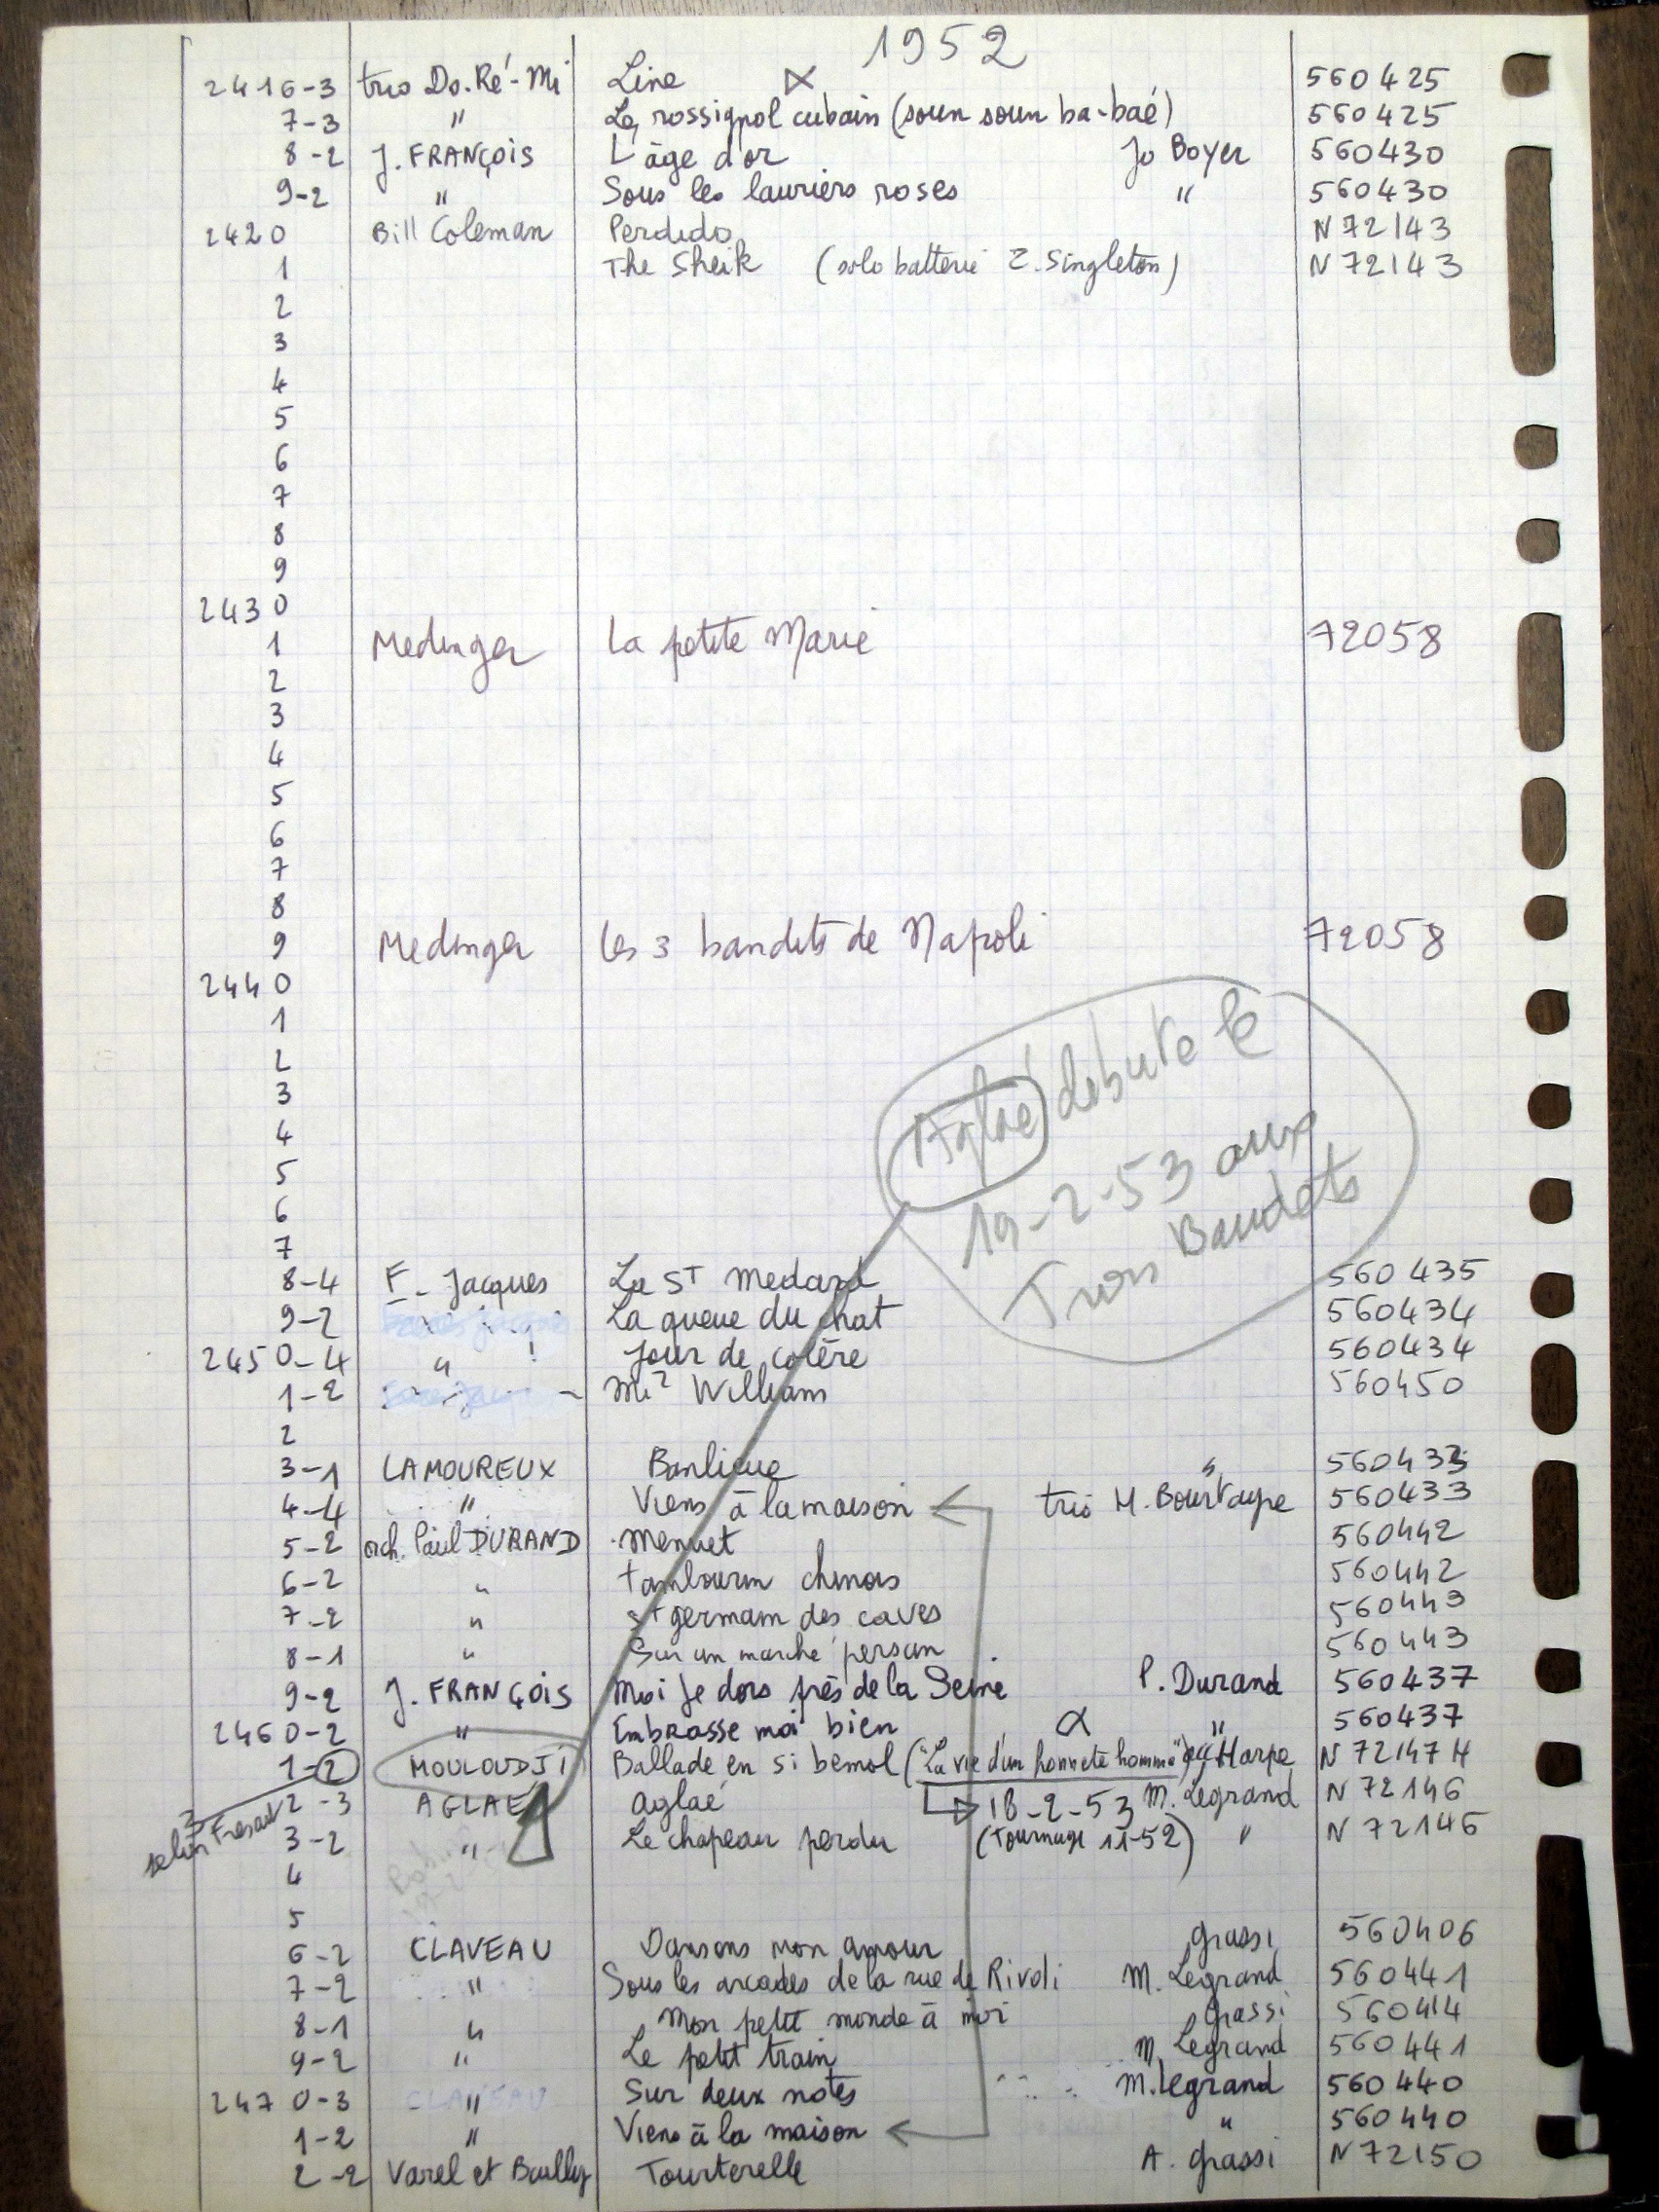 1952
2416-3 trio Do-Ré-Mi Line 560425
7-3 " Le rossignol cubain (soun soun ba-baé) 560425
8-2 J. FRANÇOIS L'âge d'or Jo Boyer 560430
9-2 " Sous les lauriers roses " 560430
2420 Bill Coleman Perdido N 72143
1 The Sheik (solo batterie Z. Singleton) N 72143
2
3
4
5
6
7
8
9
2430
1 Medinger La petite Marie 72058
2
3
4
5
6
7
8
9 Medinger les 3 bandits de Napoli 72058
2440
1
2
3
4
5
6
7
Aglaé débute le
19-2-53 aux
Trois Baudets
8-4 F. Jacques La St Medard 560435
9-2 La queue du chat 560434
2450-4 " Jour de colère 560434
1-2 Mr William 560450
2
3-1 LAMOUREUX Banlieue " 560433
4-4 " Viens à la maison trio H. Bourtayre 560433
5-2 orch. Paul DURAND Menuet 560442
6-2 " tambourin chinois 560442
7-2 " St germain des caves 560443
8-1 " Sur un marché persan 560443
9-2 J. FRANÇOIS Moi je dors près de la Seine P. Durand 560437
2460-2 " Embrasse moi bien " 560437
1-2 MOULOUDJI Ballade en si bemol ("La vie d'un honnete homme") Harpe N 72147 H
2-3 AGLAÉ Aglaé 18-2-53 M. Legrand N 72146
3-2 " Le chapeau perdu (Tournage 11-52) " N 72146
3 selon
4
5
6-2 CLAVEAU Dansons mon amour grassi 560406
7-2 " Sous les arcades de la rue de Rivoli M. Legrand 560441
8-1 " Mon petit monde à moi grassi 560414
9-2 " Le petit train M. Legrand 560441
2470-3 " Sur deux notes M. Legrand 560440
1-2 " Viens à la maison " 560440
2-2 Varel et Bailly Tourterelle A. grassi N 72150